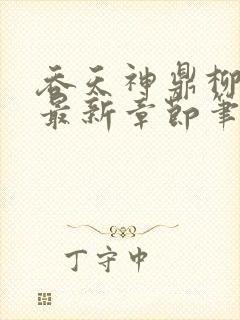 吞天神鼎柳
最新章节笔
丁守中